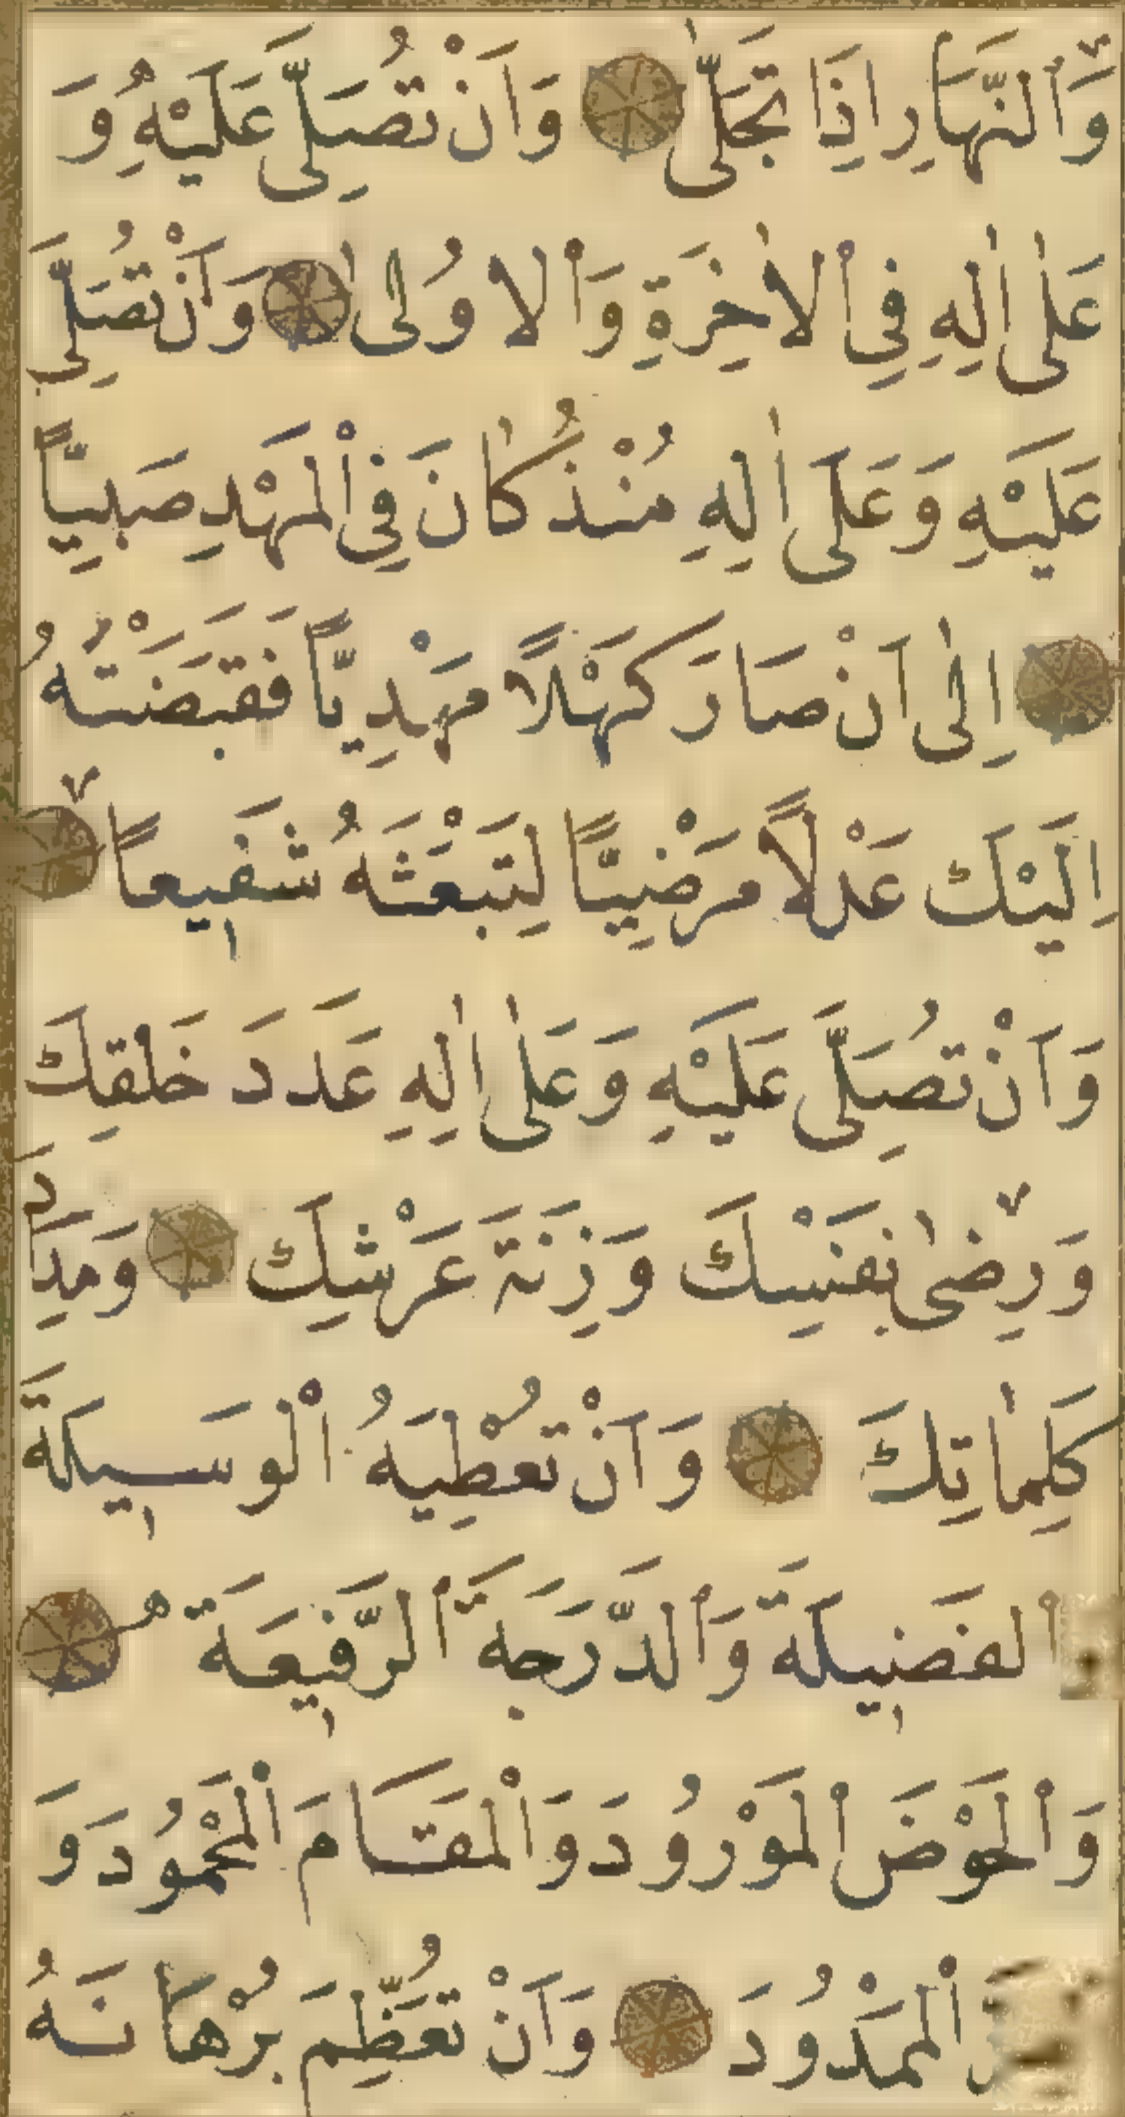 وَٱلنَّهَارِ اِذَا تَجَلّٰى وَاَنْ تُصَلِّىَ عَلَيْهِ وَ
عَلٰى اٰلِهِ فِى ٱلاٰخِرَةِ وَٱلاُولٰى وَاَنْ تُصَلِّىَ
عَلَيْهِ وَعَلَى اٰلِهِ مُنْذُ كَانَ فِى ٱلْمَهْدِ صَبِيًّا
اِلٰى اَنْ صَارَ كَهْلًا مَهْدِيًّا فَقَبَضْتَهُ
اِلَيْكَ عَدْلًا مَرْضِيًّا لِتَبْعَثَهُ شَفِيعاً
وَاَنْ تُصَلِّىَ عَلَيْهِ وَعَلٰى اٰلِهِ عَدَدَ خَلْقِكَ
وَرِضٰى نَفْسِكَ وَزِنَةَ عَرْشِكَ وَمِدَادَ
كَلِمَاتِكَ وَاَنْ تُعْطِيَهُ ٱلْوَسِيلَةَ
وَٱلفَضِيلَةَ وَٱلدَّرَجَةَ ٱلرَّفِيعَةَ
وَٱلْحَوْضَ ٱلْمَوْرُودَ وَٱلْمَقَامَ ٱلْمَحْمُودَ وَ
ٱلْمَمْدُودَ وَاَنْ تُعَظِّمَ بُرْهَانَهُ